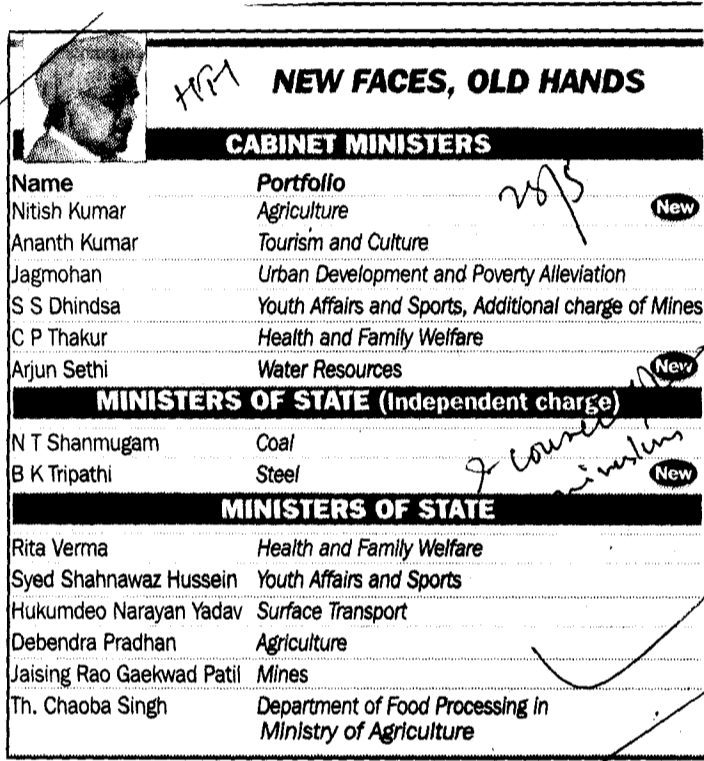 NEW FACES, OLD HANDS
CABINET MINISTERS
Name Portfolio
28/5
Nitish Kumar Agriculture New
Ananth Kumar Tourism and Culture
Jagmohan Urban Development and Poverty Alleviation
S S Dhindsa Youth Affairs and Sports, Additional charge of Mines
C P Thakur Health and Family Welfare
Arjun Sethi Water Resources New
MINISTERS OF STATE (Independent charge)
N T Shanmugam Coal
B K Tripathi Steel New
MINISTERS OF STATE
Rita Verma Health and Family Welfare
Syed Shahnawaz Hussein Youth Affairs and Sports
Hukumdeo Narayan Yadav Surface Transport
Debendra Pradhan Agriculture
Jaising Rao Gaekwad Patil Mines
Th. Chaoba Singh Department of Food Processing in
Ministry of Agriculture